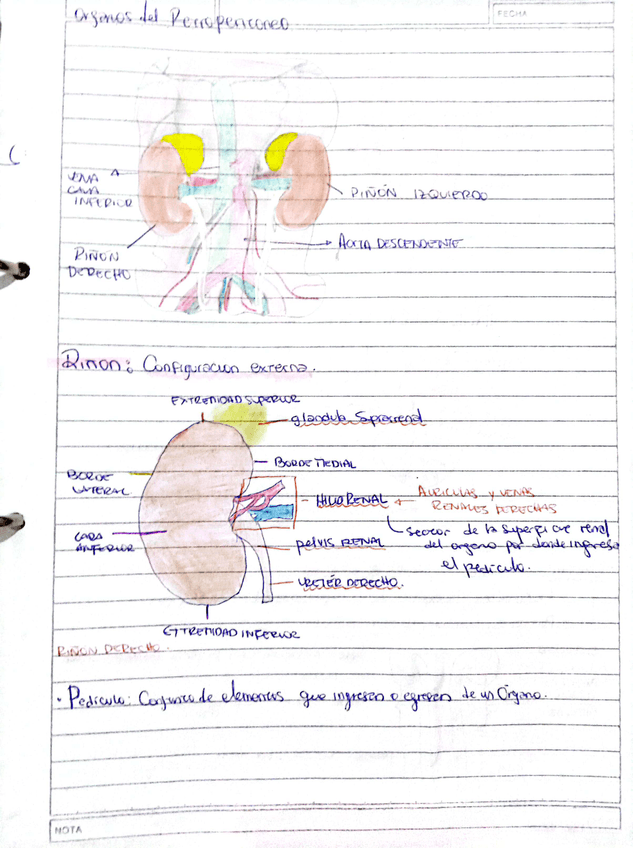 Organos del Retroperitoneo
FECHA
VENA
CAVA
INFERIOR
RIÑÓN IZQUIERDO
AORTA DESCENDENTE
RIÑON
DERECHO
Riñon: Configuracion externa.
EXTREMIDAD SUPERIOR
glandula Suprarrenal
BORDE MEDIAL
BORDE
LATERAL
HILIO RENAL
AURICULAS Y VENAS
RENALES DERECHAS
sector de la superficie renal
del organo por donde ingresa
el pediculo.
CARA
ANTERIOR
PELVIS RENAL
URETÉR DERECHO.
EXTREMIDAD INFERIOR
RIÑON DERECHO.
· Pediculo: Conjunto de elementos que ingresen o egresen de un Organo.
NOTA